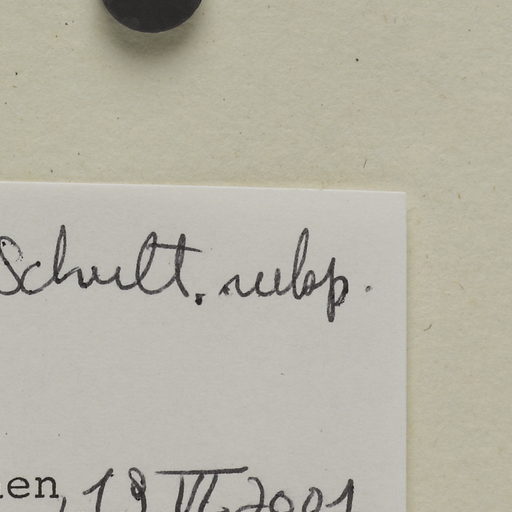 Schult. subsp.
en, 19 VI 2001